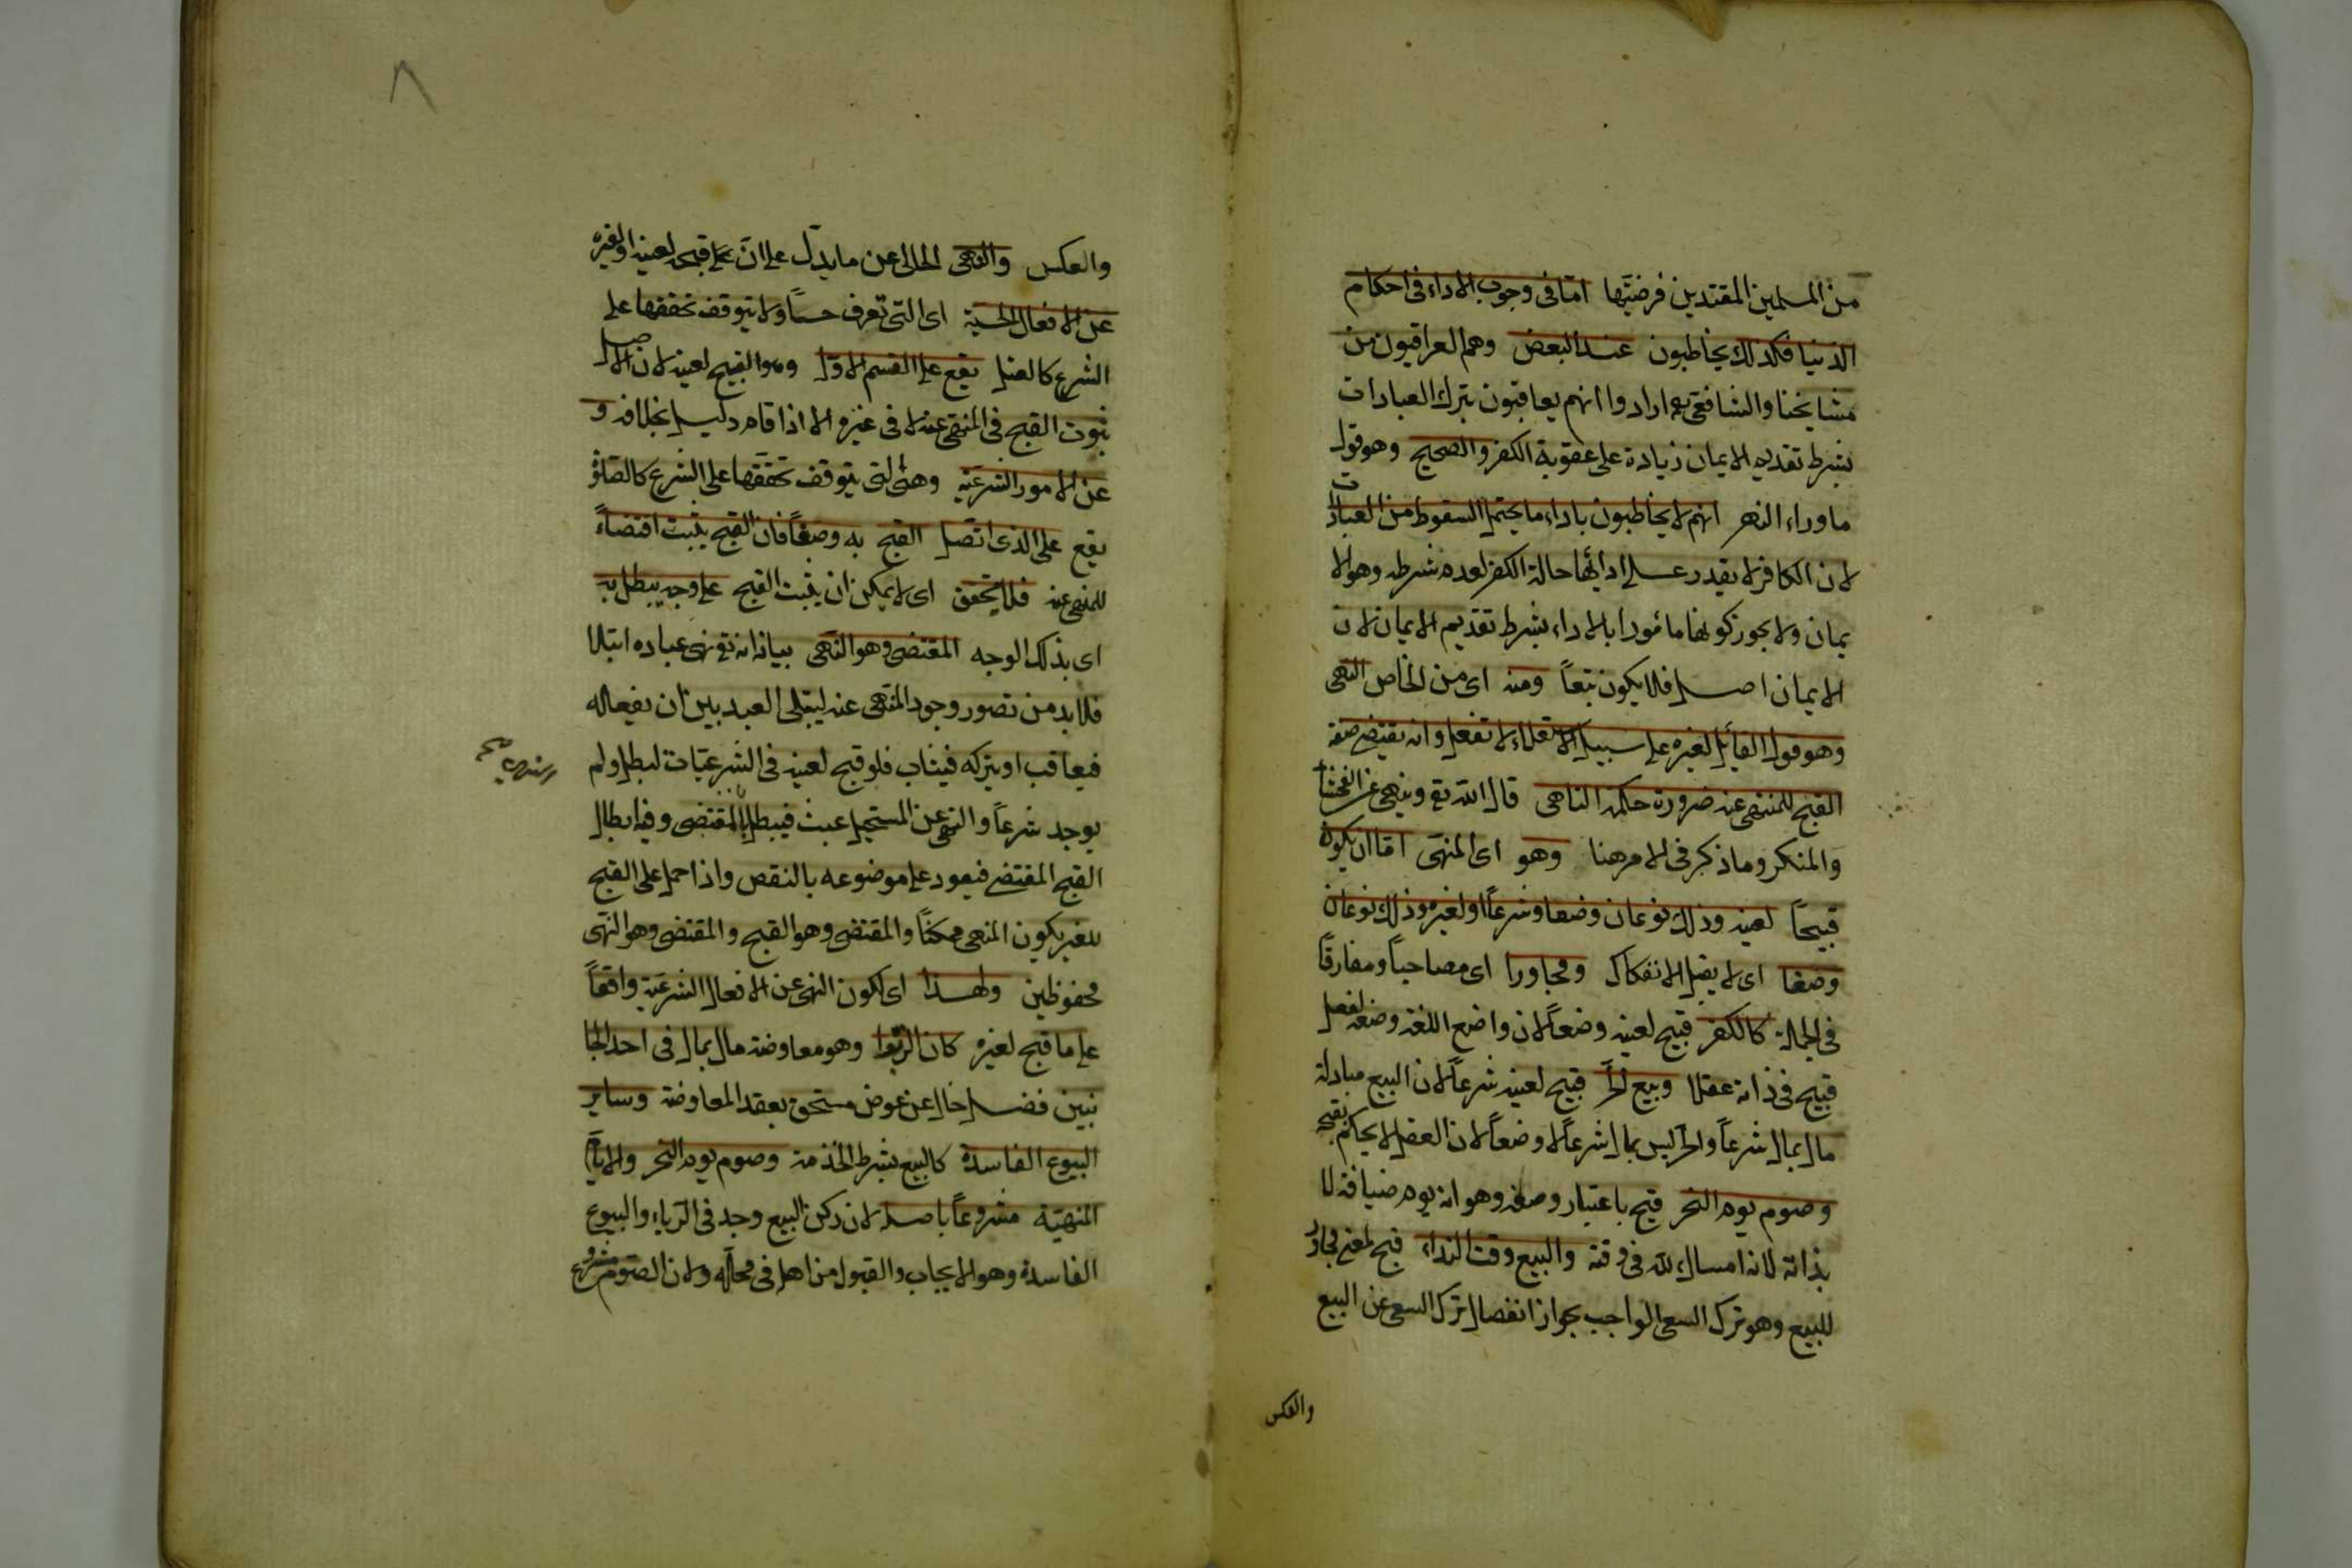 من المسلمين المقتدين فرضيتها امّا فى وجوب الاداء فى احكام
الدنيا فكذلك يخاطبون عند البعض وهم العراقيون من
مشايخنا والشافعى رحمه ارادوا انهم يعاقبون بترك العبادات
بشرط تقديم الايمان زيادة على عقوبة الكفر والصحيح وهو قول
ما وراء النهر انهم لا يخاطبون باداء ما يحتمل السقوط من العبادات
لان الكافر لا يقدر على ادائها حالة الكفر لعدم شرطه وهو الا
يمان ولا يجوز كونها مأمورا بالاداء بشرط تقديم الايمان لان
الايمان اصل فلا يكون تبعاً ومنه اى من الخاص النهى
وهو قول القائل لغيره على سبيل الاستعلاء لا تفعل وانه يقتضى صفة
القبح للمنهى عنه ضرورة حكمة الناهى قال الله تع وينهى عن الفحشاء
والمنكر وما ذكر فى الامر هنا وهو اى المنهى امّا ان يكون
قبيحًا لعينه وذلك نوعان وضعا وشرعًا او لغيره وذلك نوعان
وصفا اى لا يقبل الانفكاك ومجاورا اى مصاحباً ومفارقًا
فى الجملة كالكفر قبيح لعينه وضعاً لان واضع اللغة وضعه لفعل
قبيح فى ذاته عقلا وبيع الحرّ قبيح لعينه شرعاً لان البيع مبادلة
مال بمال شرعاً والحر ليس بمال شرعاً لا وضعاً لان العقل لا يحكم بقبحه
وصوم يوم النحر قبيح باعتبار وصفه وهو انه يوم ضيافة لا
بذاته لانه امساك لله فى وقته والبيع وقت النداء قبيح لمعنى مجاور
للبيع وهو ترك السعى الواجب بجواز انفصال ترك السعى عن البيع
والعكس
٨
والعكس والنهى الخالى عن ما يدل على انّ على قبحه لعينه او لغيره
عن الافعال الحسيّة اى التى تعرف حسًا ولا يتوقف تحققها على
الشرع كالقتل يقع على القسم الاول وهو القبيح لعينه لان الاصل
ثبوت القبح فى المنهى عنه لا فى غيره الا اذا قام دليل بخلافه و
عن الامور الشرعيّة وهى التى يتوقف تحققها على الشرع كالصلوة
يقع على الذى اتصل القبح به وصفاً فان القبح يثبت اقتضاءً
للمنهى عنه فلا يتحقق اى لا يمكن ان يثبت القبح على وجه يبطل به
اى بذلك الوجه المقتضى وهو النهى بيانه انه تع نهى عباده ابتلا
فلا بد من تصور وجود المنهى عنه ليبتلى العبد بين ان يفعله
فيعاقب او يتركه فيثاب فلو قبح لعينه فى الشرعيّات لبطل ولم
يوجد شرعاً والنهى عن المستحيل عبث فيبطل المقتضى وفيه ابطال
القبح المقتضى فيعود على موضوعه بالنقض واذا حمل على القبح
للغير يكون المنهى ممكنًا والمقتضى وهو القبح والمقتضى وهو النهى
محفوظين ولهذا اى لكون النهى عن الافعال الشرعيّة واقعاً
على ما قبح لغيره كان الربوا وهو معاوضة مال بمال فى احد الجا
نبين فضل خال عن عوض مستحق بعقد المعاوضة وساير
البيوع الفاسدة كالبيع بشرط الخدمة وصوم يوم النحر والايام
المنهيّة مشروعاً باصله لان ركن البيع وجد فى الرباء والبيوع
الفاسدة وهو الايجاب والقبول من اهله فى محله ولان الصوم مشروع